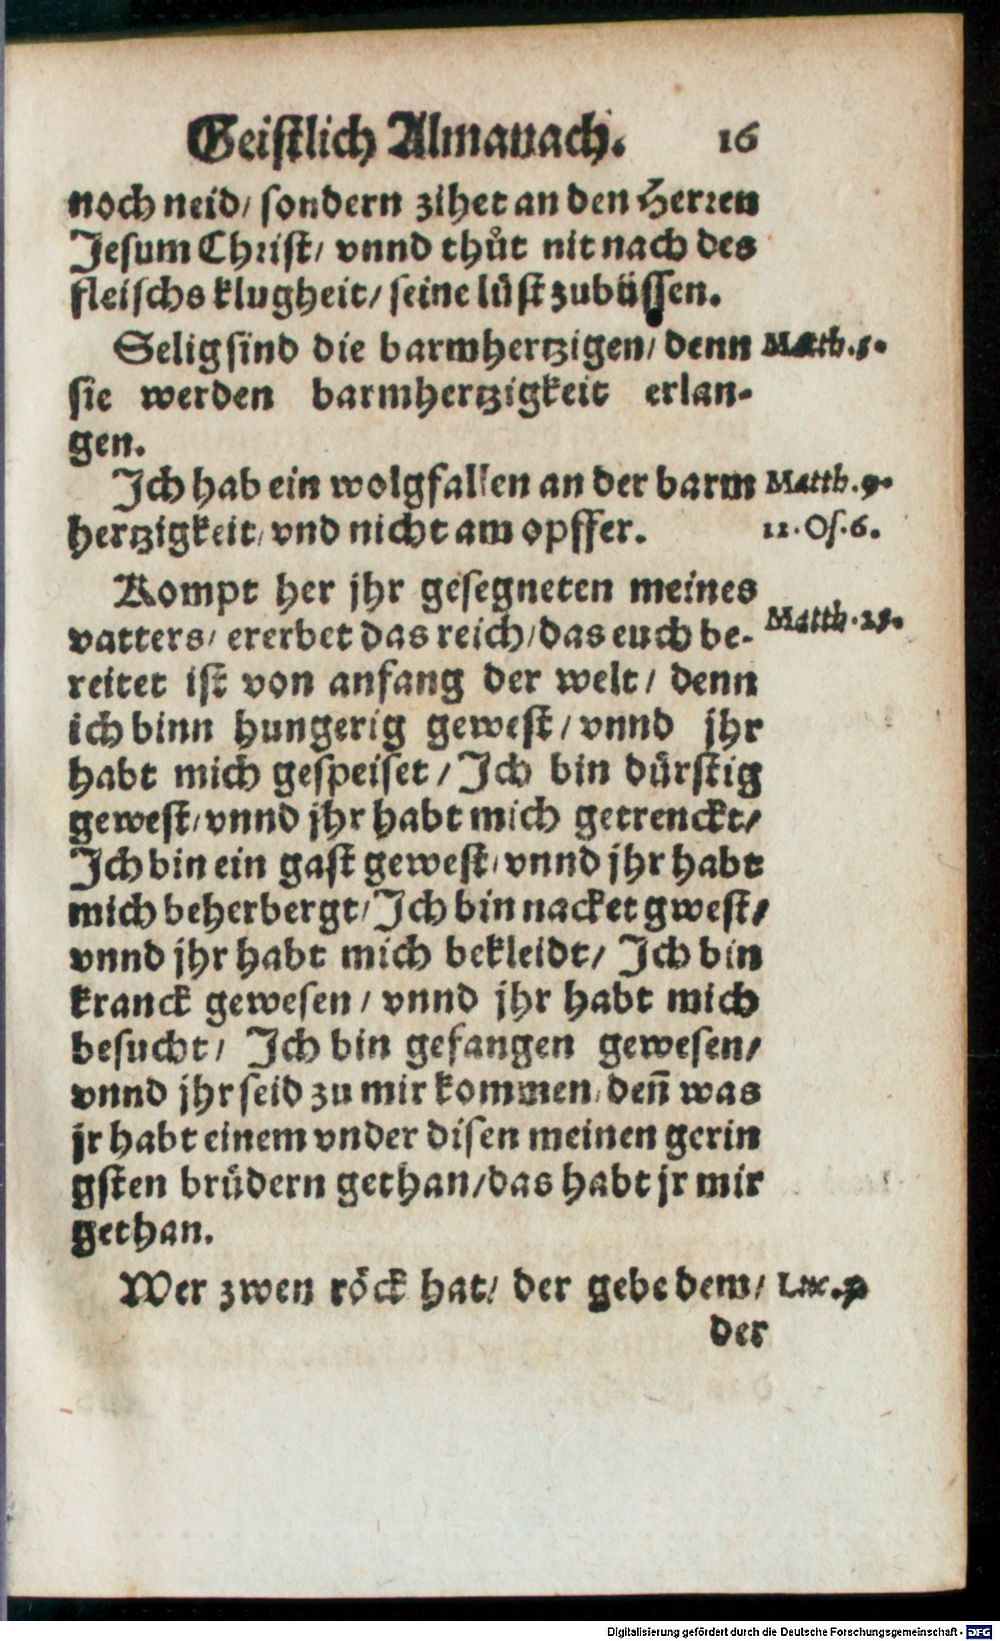 Geistlich Almanach. 16
noch neid/ sondern zihet an den Herren
Jesum Christ/ vnnd thůt nit nach des
fleischs klugheit/ seine lůst zubüssen.
Selig sind die barmhertzigen/ denn Matth.5.
sie werden barmhertzigkeit erlan-
gen.
Ich hab ein wolgfallen an der barm Matth.9.
hertzigkeit/ vnd nicht am opffer. 12.Os.6.
Kompt her jhr gesegneten meines
vatters/ ererbet das reich/ das euch be- Matth.25.
reitet ist von anfang der welt/ denn
ich binn hungerig gewest/ vnnd jhr
habt mich gespeiset/ Ich bin dürstig
gewest/ vnnd jhr habt mich getrenckt/
Ich bin ein gast gewest/ vnnd jhr habt
mich beherbergt/ Ich bin nacket gwest/
vnnd jhr habt mich bekleidt/ Ich bin
kranck gewesen/ vnnd jhr habt mich
besucht/ Ich bin gefangen gewesen/
vnnd jhr seid zu mir kommen/ deñ was
jr habt einem vnder disen meinen gerin
gsten brüdern gethan/ das habt jr mir
gethan.
Wer zwen röck hat/ der gebe dem/ Luc.
der
Digitalisierung gefördert durch die Deutsche Forschungsgemeinschaft - DFG